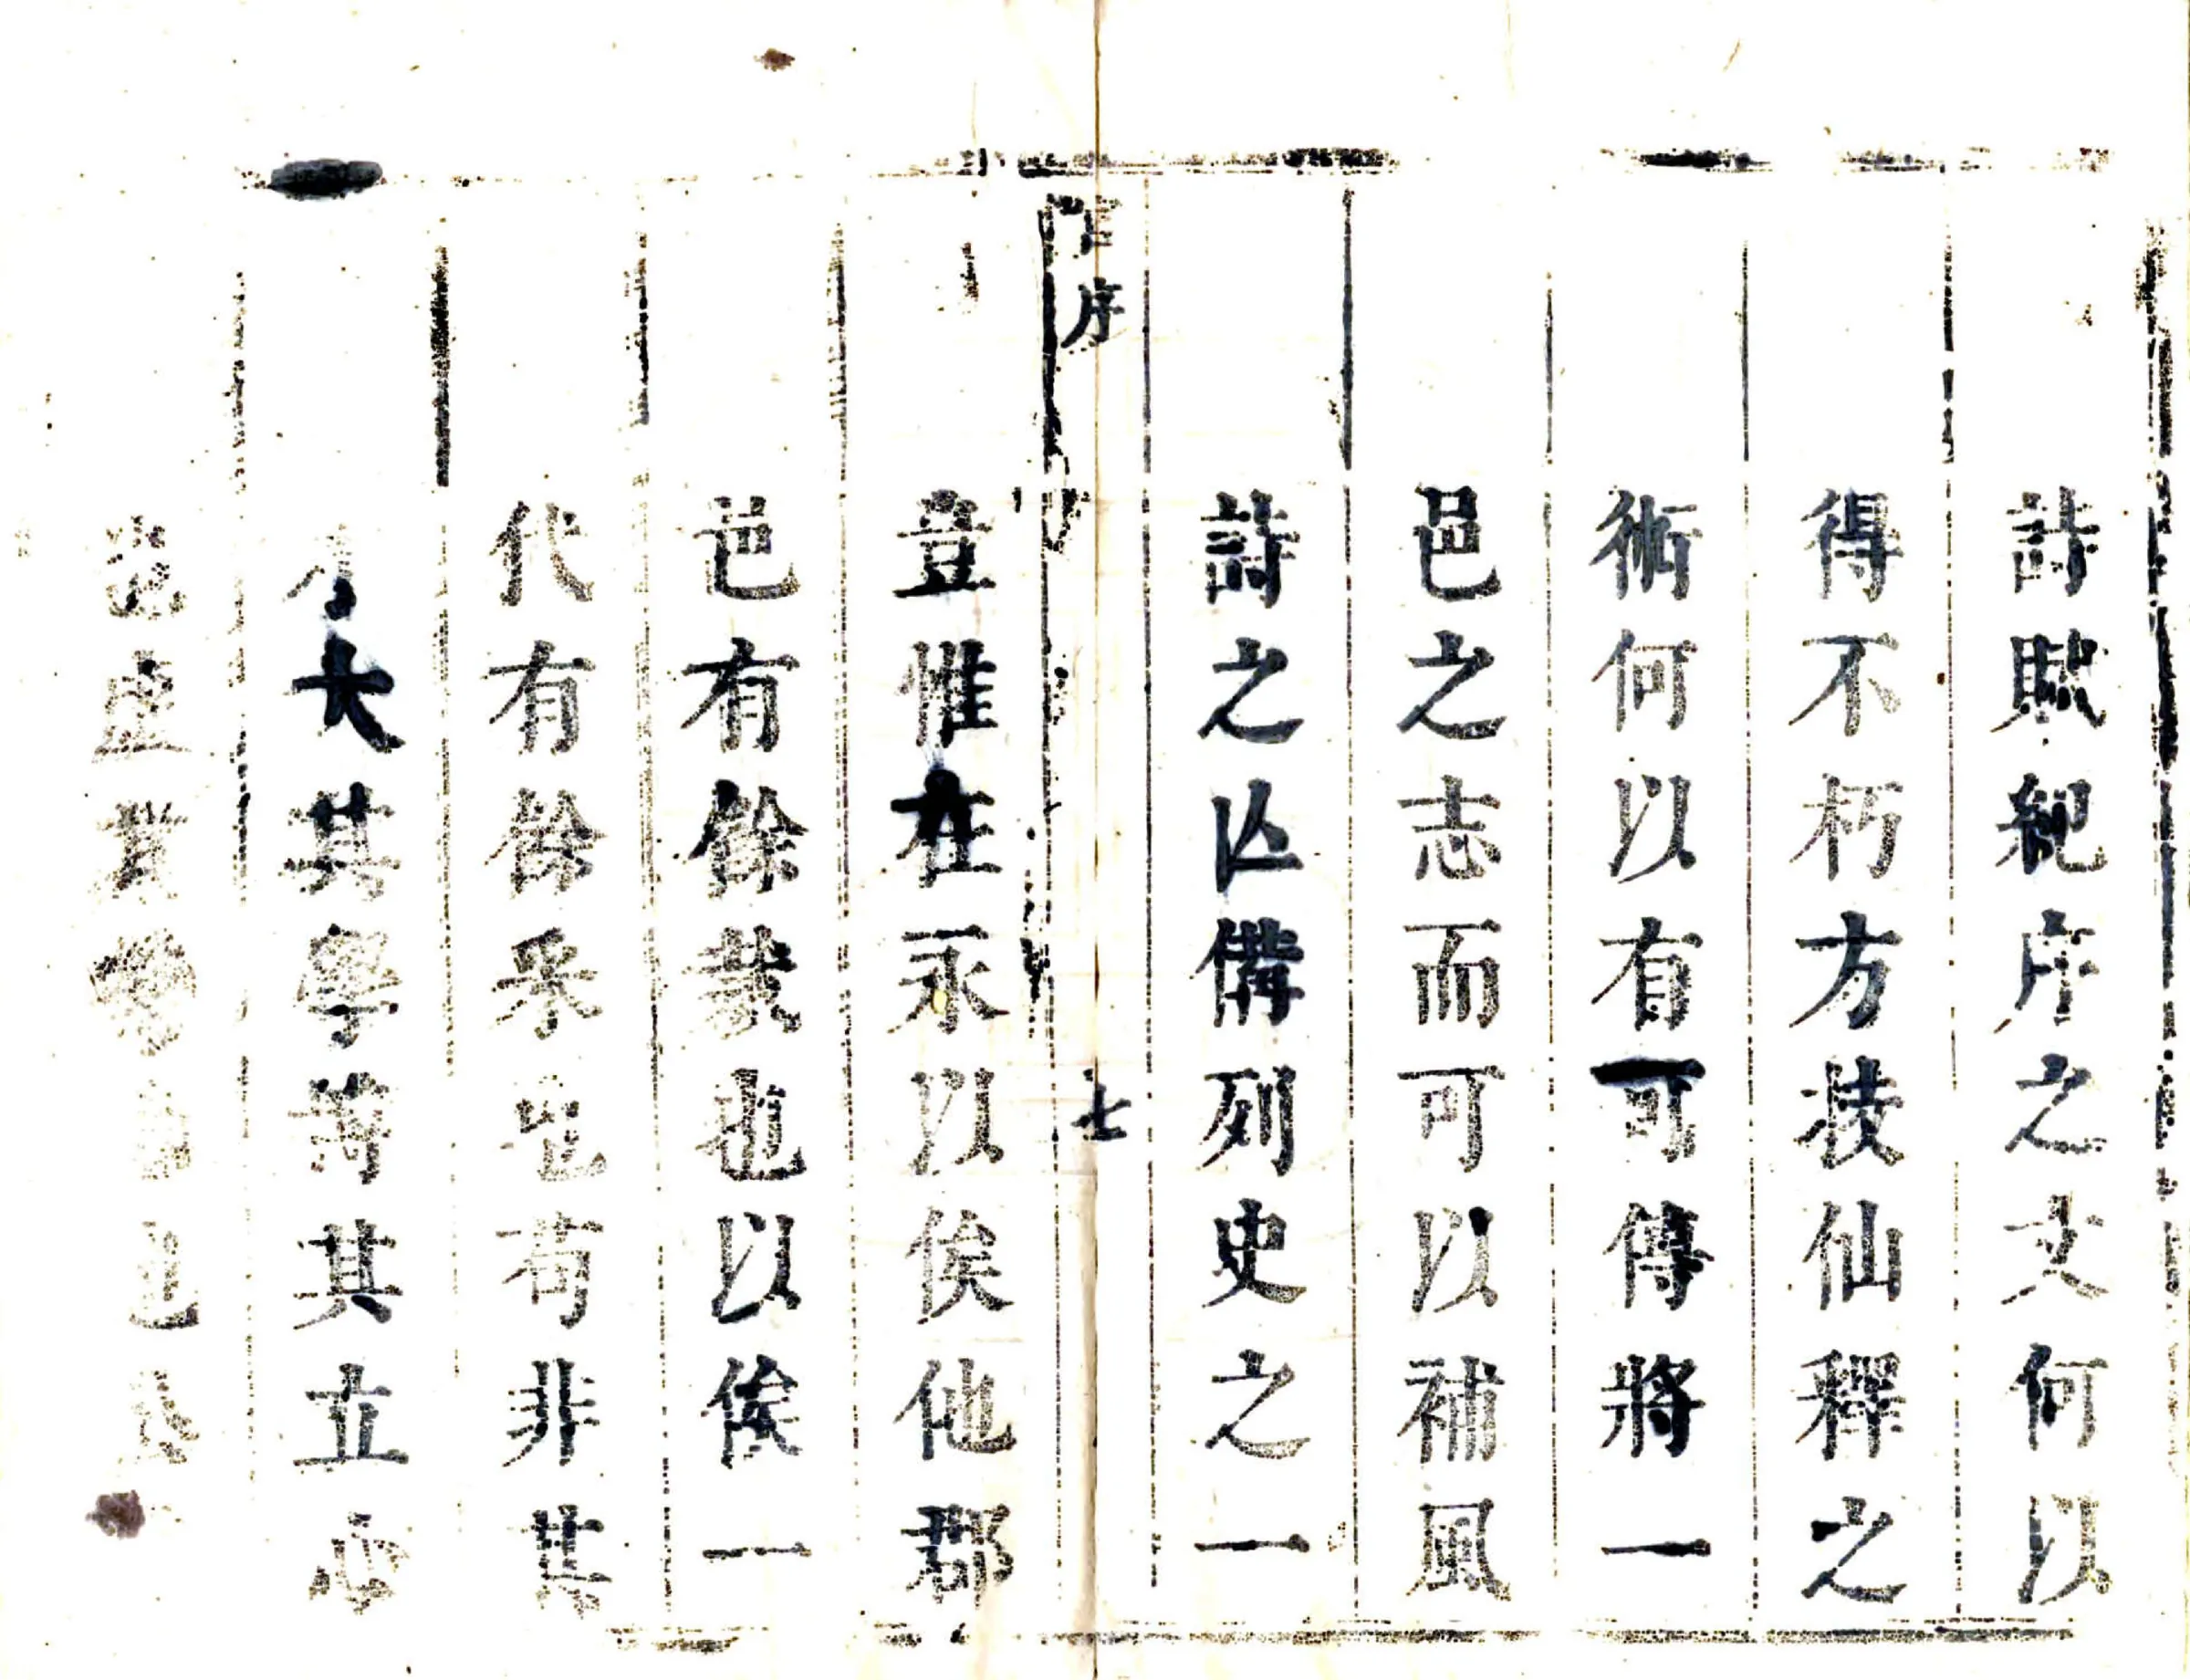 詩賦紀序之文何以
得不朽方技仙釋之
術何以有可傳將一
邑之志而可以補風
詩之亾備列史之一
序
七
豈惟在永以俟他郡
邑有餘裁也以俟一
代有餘采也苟非其
大其學菁其立心
也